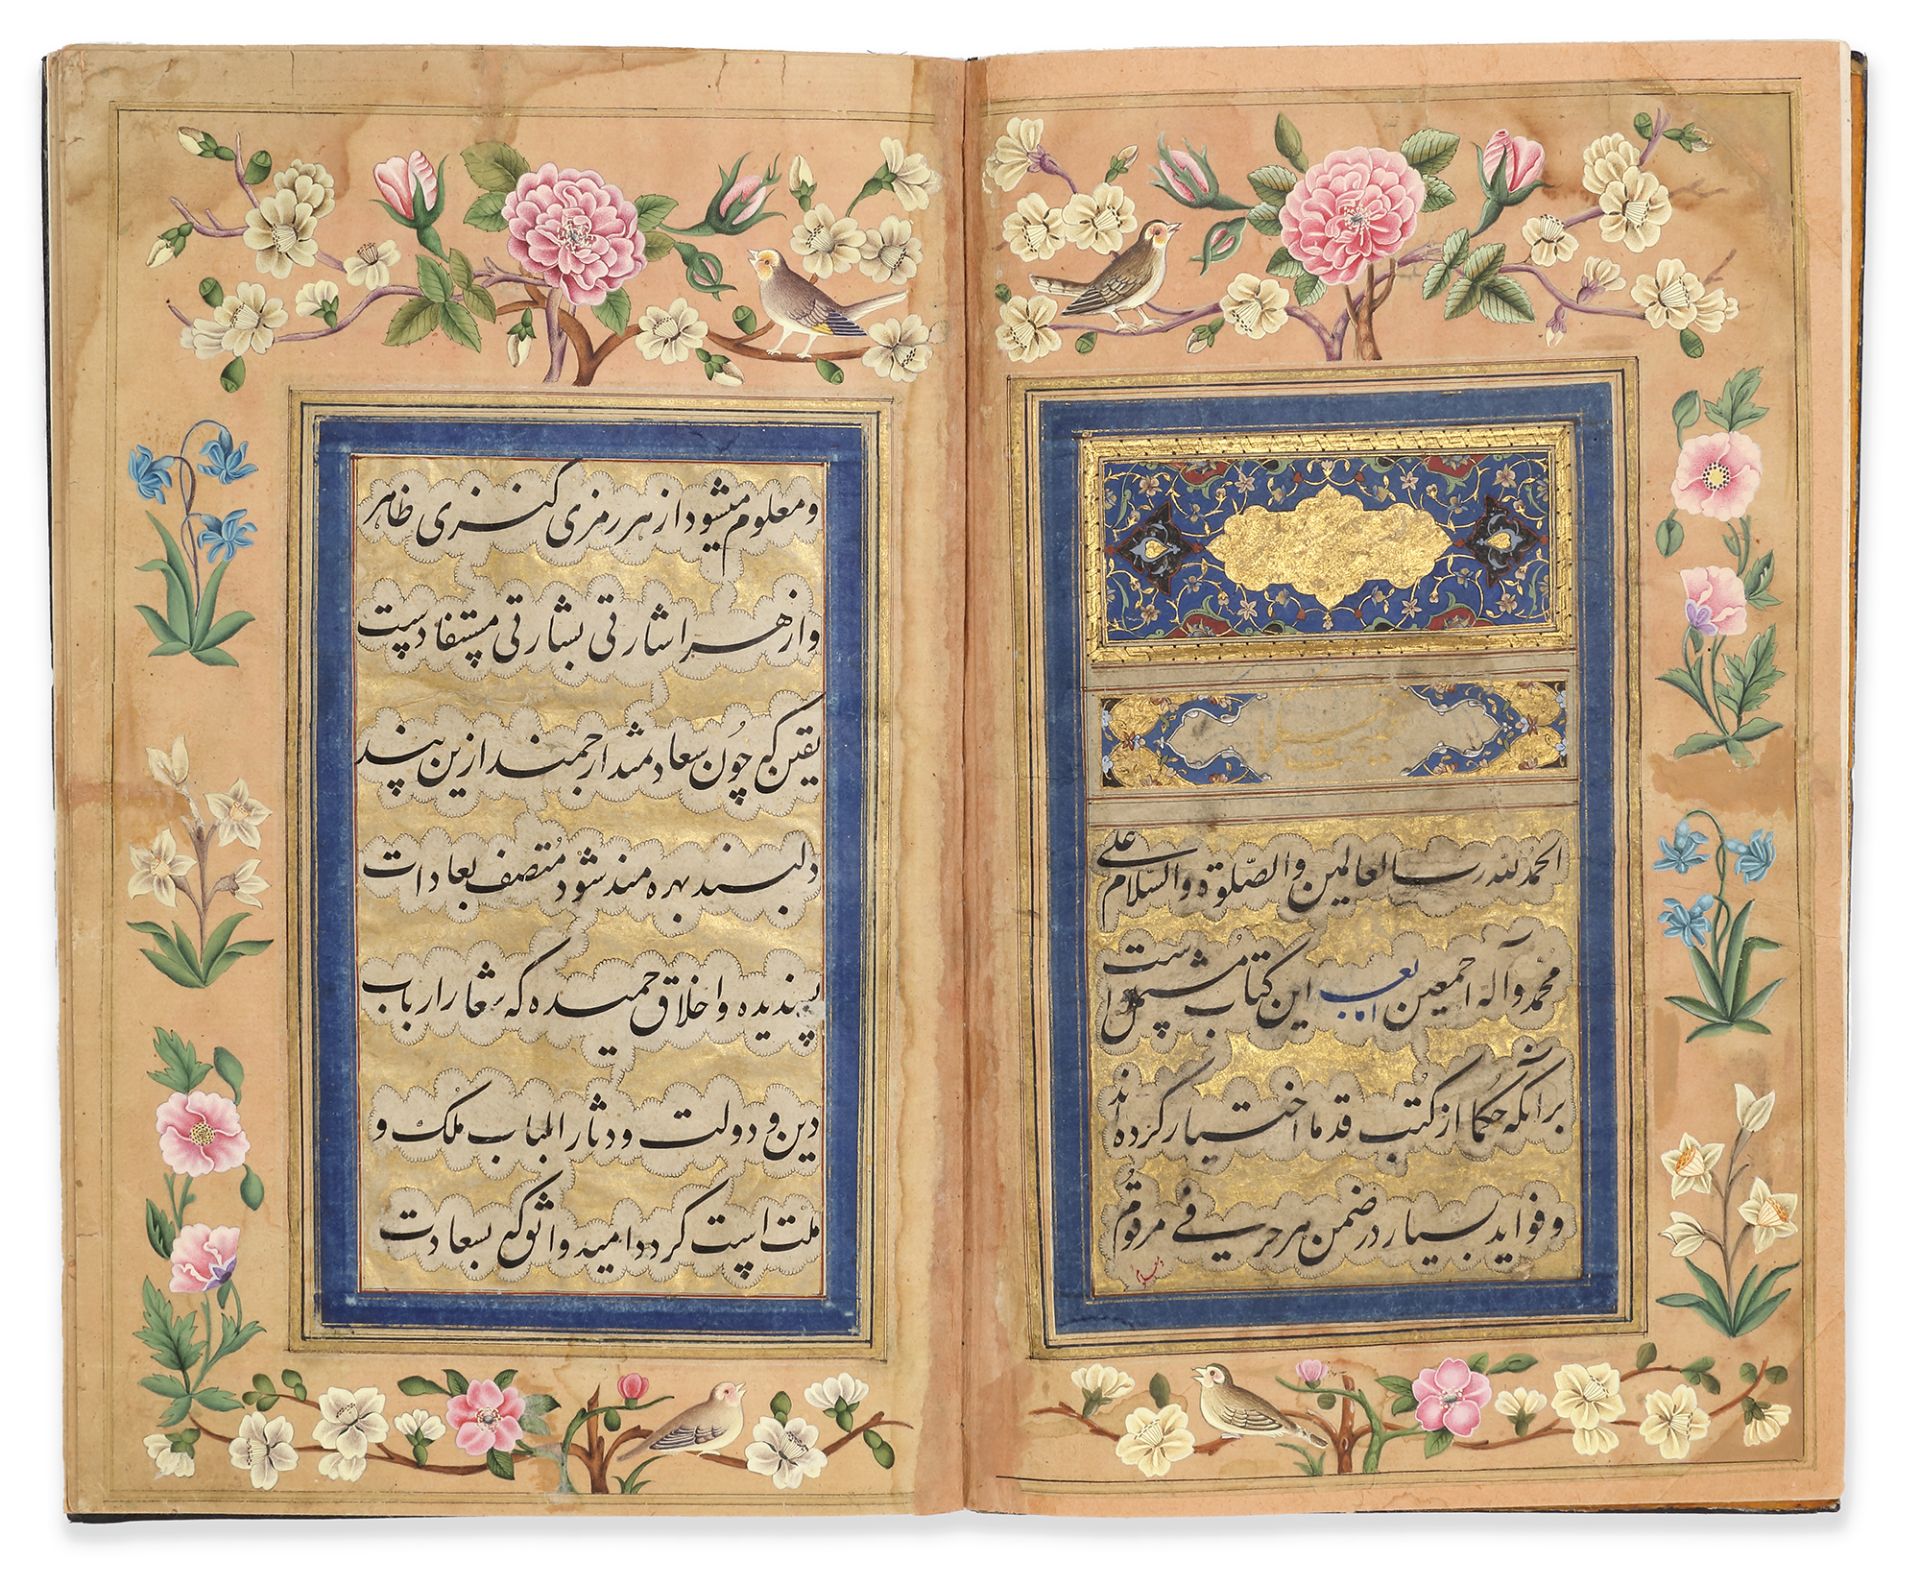 الحمد لله رب العالمین والصّلوة والسّلام علی
محمد وآله اجمعین اما بعد این کتاب مشتمل است
برانکه حکما از کتب قدما اختیار کرده اند
و فواید بسیار در ضمن هر حرفی مرقوم
و معلوم میشود از هر رمزی کنزی ظاهر
و از هر اشارتی بشارتی مستفادست
یقین که چون سعادتمند ارجمند ازین پند
دلبند بهره مند شود متصف بعادات
پسندیده و اخلاق حمیده که شعار ارباب
دین و دولت و دثار الباب ملک و
ملت است کردد امید واثق که بسعادت